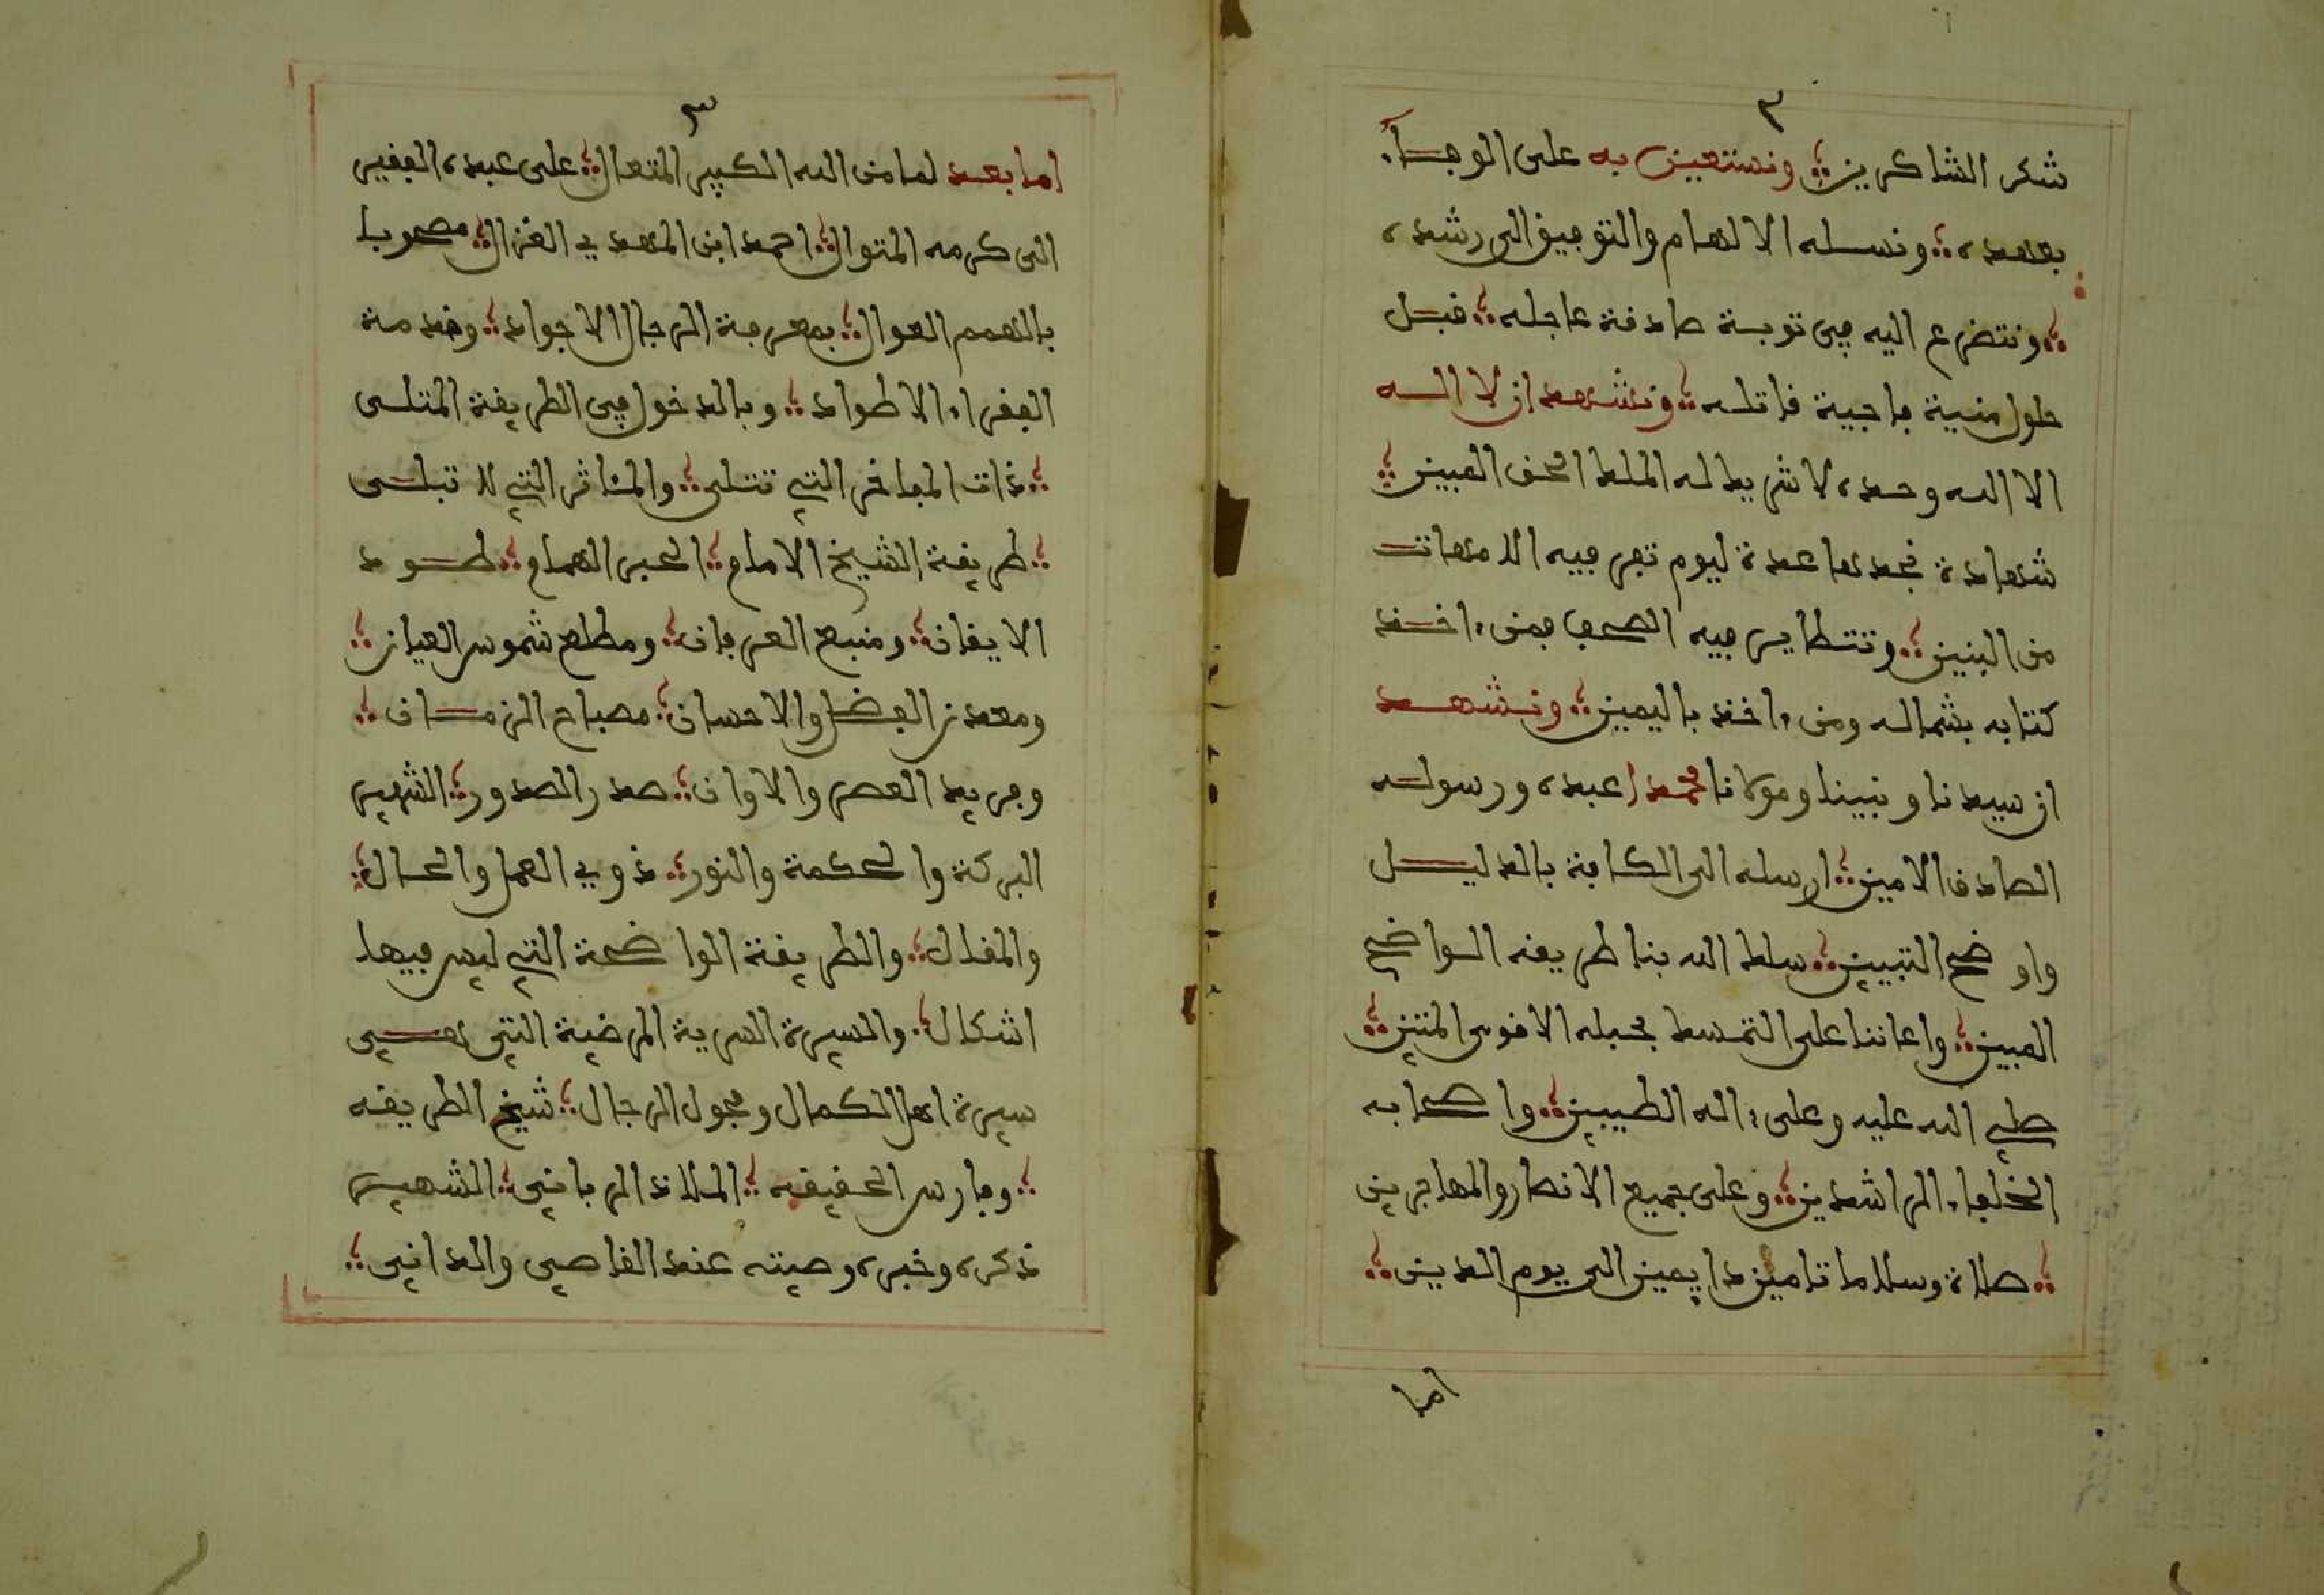 ٢
شكر الشاكرين ونستعين به على الوجـاء
بعهده ونسله الالهام والتوفيق الى رشده
ونتضرع اليه في توبة صادقة عاجله قبل
حلول منية فاجية قاتله ونشهد ان لا اله
الا الله وحده لا شريك له الملك الحق المبين
شهادة نجدها عدة ليوم تفر فيه الامهات
من البنين وتتطاير فيه الصحف فمن ءاخذ
كتابه بشماله ومن ءاخذ باليمين ونشهد
ان سيدنا ونبينا ومولانا محمدا عبده ورسوله
الصادق الامين ارسله الى الكافة بالدليل
واوضح التبيين سلك الله بنا طريقه الواضح
المبين واعاننا على التمسك بحبله الاقوى المتين
صلى الله عليه وعلى ءاله الطيبين واصحابه
الخلفاء الراشدين وعلى جميع الانصار والمهاجرين
صلاة وسلاما تامين دايمين الى يوم الدين
اما
٣
اما بعد لما من الله الكبير المتعال على عبده الفقير
الى كرمه المتوال احمد ابن المهدي الغزال مصحوبا
بالهمم العوال بمعرفة الرجال الاجواد وخدمة
الفقراء الاطواد وبالدخول في الطريقة المثلى
ذات المفاخر التي تتلى والمئاثر التي لا تبلى
طريقة الشيخ الامام الحبر الهمام طود
الايقان ومنبع العرفان ومطلع شموس العيان
ومعدن الفضل والاحسان مصباح الزمان
وفريد العصر والاوان صدر الصدور الشهير
البركة والحكمة والنور ذوي العمل والحال
والمقال والطريقة الواضحة التي ليس فيها
اشكال والسيرة السرية المرضية التي هي
سيرة اهل الكمال وفحول الرجال شيخ الطريقه
وفارس الحقيقه الملاذ الرباني الشهير
ذكره وخبره وصيته عند القاصي والداني